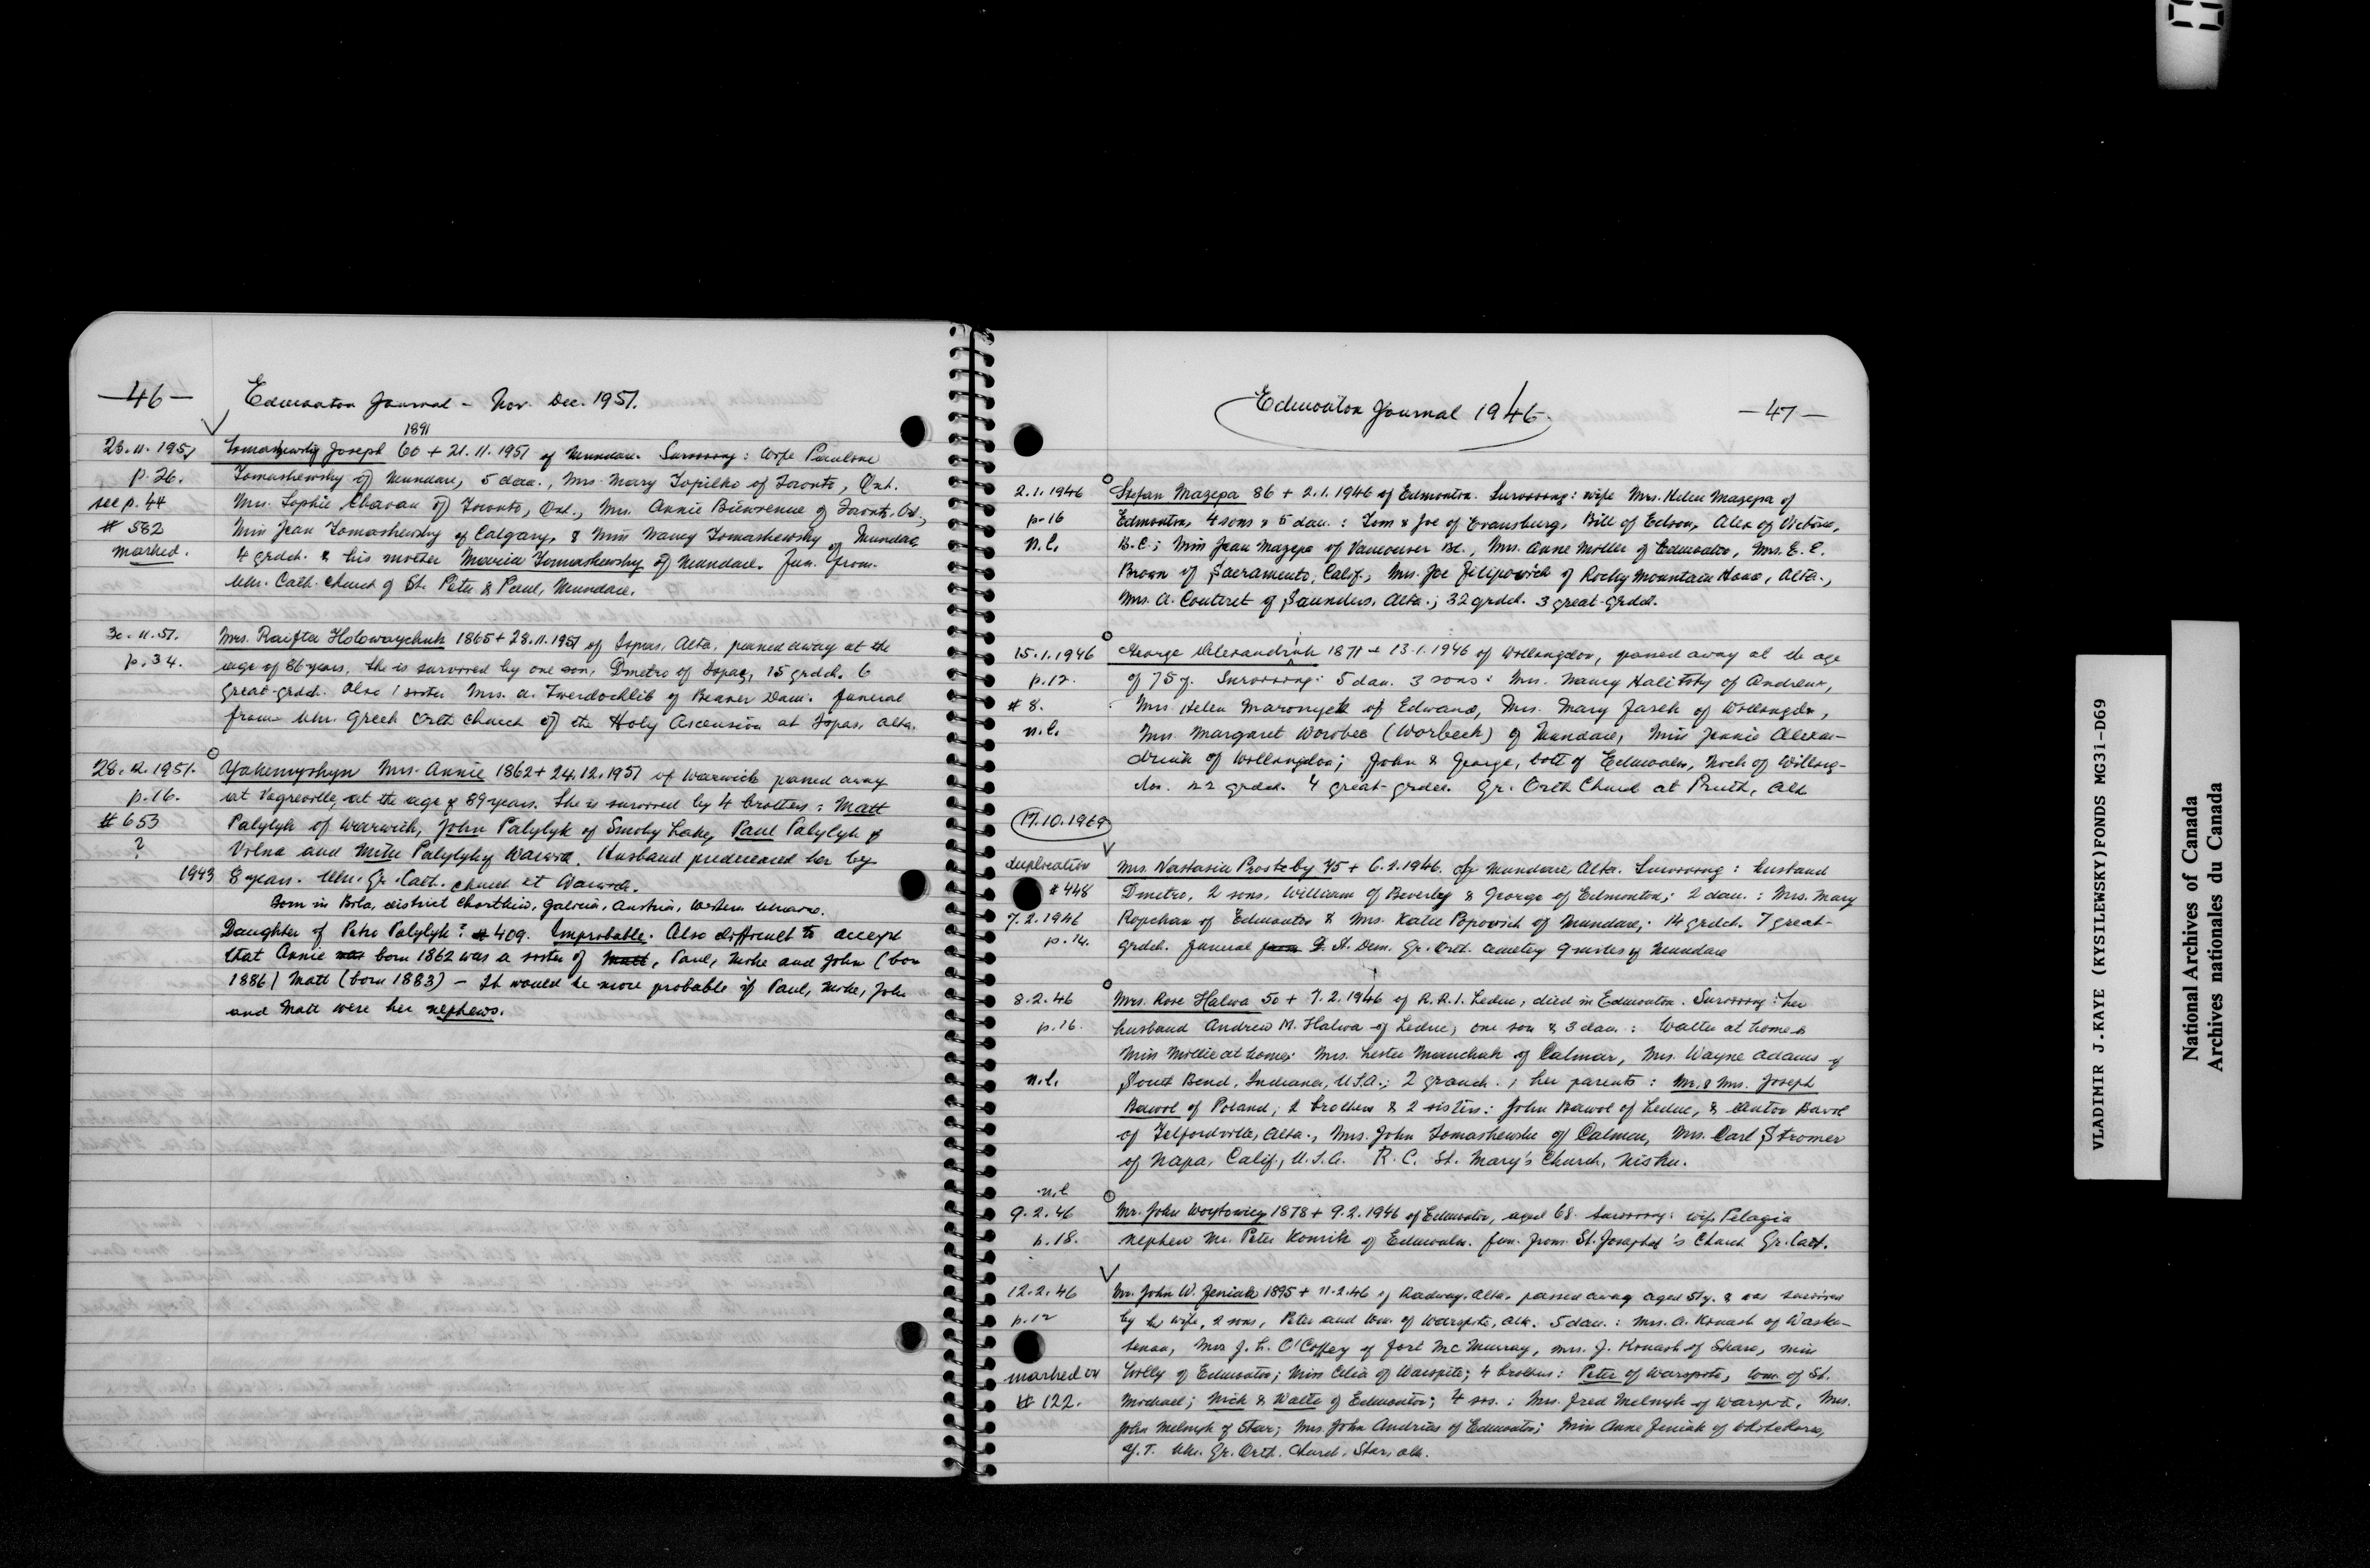 —46—
Edmonton Journal – Nov. Dec. 1951.
1891
23.11.1951 Tomashewsky Joseph 60 + 21.11.1951 of Mundare. Surviving: wife Pauline
p. 26. Tomashewsky of Mundare, 5 dau., Mrs. Mary Topilko of Toronto, Ont.
see p. 44 Mrs. Sophie Chavan of Toronto, Ont., Mrs. Annie Bienvenue of Toronto, Ont.,
# 582 Miss Jean Tomashewsky of Calgary, & Miss Nancy Tomashewsky of Mundare
marked. 4 grdch. & his mother Maria Tomashewsky of Mundare. Fun. from.
Ukr. Cath. church of St. Peter & Paul, Mundare.
30.11.51. Mrs. Raifta Holowaychuk 1865 + 28.11.1951 of Sopas, Alta, passed away at the
p. 34. age of 86 years. She is survived by one son, Dmetro of Topas, 15 grdch. 6
great-grdch. Also 1 sister Mrs. A. Twerdochlib of Beaver Dam. funeral
from Ukr. Greek Orth church of the Holy Ascension at Topas, Alta.
28.12.1951. Yakemyshyn Mrs. Annie 1862 + 24.12.1951 of Warwick passed away
p. 16. at Vegreville, at the age of 89 years. She is survived by 4 brothers: Matt
# 653 Palylyk of Warwick, John Palylyk of Smoky Lake, Paul Palylyk of
? Vilna and Mike Palylyk of Warwick. Husband predeceased her by
1943 8 years. Ukr. Gr. Cath. church at Warwick.
Born in Bila, district Chortkiw, Galicia, Austria, Western Ukraine.
Daughter of Petro Palylyk? # 409. Improbable. Also difficult to accept
that Annie was born 1862 was a sister of Matt, Paul, Mike and John (born
1886) Matt (born 1883) – It would be more probable if Paul, Mike, John
and Matt were her nephews.
Edmonton Journal 1946.
—47—
2.1.1946 Stefan Mazepa 86 + 2.1.1946 of Edmonton. Surviving: wife Mrs. Helen Mazepa of
p.16 Edmonton, 4 sons & 5 dau.: Tom & Joe of Evansburg, Bill of Edson, Alex of Victoria,
n.l. B.C.; Miss Jean Mazepa of Vancouver BC., Mrs. Anne Moller of Edmonton, Mrs. E. E.
Brown of Sacramento, Calif., Mrs. Joe Filipowich of Rocky Mountain House, Alta.,
Mrs. A. Couteret of Saunders, Alta.; 32 grdch. 3 great-grdch.
15.1.1946 George Alexandriuk 1871 + 13.1.1946 of Willingdon, passed away at the age
p.12. of 75 y. Surviving: 5 dau. 3 sons: Mrs. Nancy Halitsky of Andrew,
# 8. Mrs. Helen Maronyck of Edwand, Mrs. Mary Fasek of Willingdon,
n.l. Mrs. Margaret Worobec (Worbeck) of Mundare, Miss Jennie Alexan-
driuk of Willingdon; John & George, both of Edmonton, Nick of Willing-
don. 22 grdch. 4 great-grdch. Gr. Orth Church at Pruth, Alta
17.10.1969
duplication Mrs. Nastasia Prosteby 75 + 6.2.1946. of Mundare, Alta. Surviving: husband
# 448 Dmetro, 2 sons, William of Beverley & George of Edmonton; 2 dau.: Mrs. Mary
7.2.1946 Ropchan of Edmonton & Mrs. Katie Popowich of Mundare; 14 grdch. 7 great-
p. 14. grdch. funeral from St. Dem. Gr. Orth. cemetery 9 miles of Mundare
8.2.46 Mrs. Rose Halwa 50 + 7.2.1946 of R.R.1. Leduc, died in Edmonton. Surviving: her
p.16. husband Andrew M. Halwa of Leduc, one son & 3 dau.: Walter at home &
Miss Mollie at home; Mrs. Lester Manchak of Calmar, Mrs. Wayne Adams of
n.l. South Bend, Indiana, U.S.A.; 2 grandch.; her parents: Mr. & Mrs. Joseph
Bawol of Poland; 2 brothers & 2 sisters: John Bawol of Leduc, & Anton Bawol
of Telfordville, Alta., Mrs. John Tomashewski of Calmar, Mrs. Carl Stromer
of Napa, Calif., U.S.A. R.C. St. Mary's Church, Nisku.
n.l
9.2.46 Mr. John Woytowicz 1878 + 9.2.1946 of Edmonton, aged 68. Surviving: wife Pelagia
p.18. nephew Mr. Peter Komik of Edmonton. fun. from St. Josaphat's Church Gr. Cath.
12.2.46 Mr. John W. Jeniuk 1895 + 11.2.46 of Radway, Alta. passed away aged 51 y. & was survived
p.12 by his wife, 2 sons, Peter and Wm. of Warspite, Alta. 5 dau.: Mrs. A. Konash of Waska-
tenau, Mrs J. L. O'Coffey of Fort McMurray, Mrs. J. Konash of Skaro, Miss
marked on Dolly of Edmonton; Miss Celia of Warspite; 4 brothers: Peter of Warspite, Wm. of St.
# 122. Michael; Nick & Walter of Edmonton; 4 sis.: Mrs. Fred Melnyk of Warspite, Mrs.
John Melnyk of Star; Mrs. John Andrias of Edmonton; Miss Anne Jeniuk of Whitehorse,
Y.T. Ukr. Gr. Orth. Church, Star, Alta.
VLADIMIR J.KAYE (KYSILEWSKY)FONDS MG31-D69
National Archives of Canada
Archives nationales du Canada